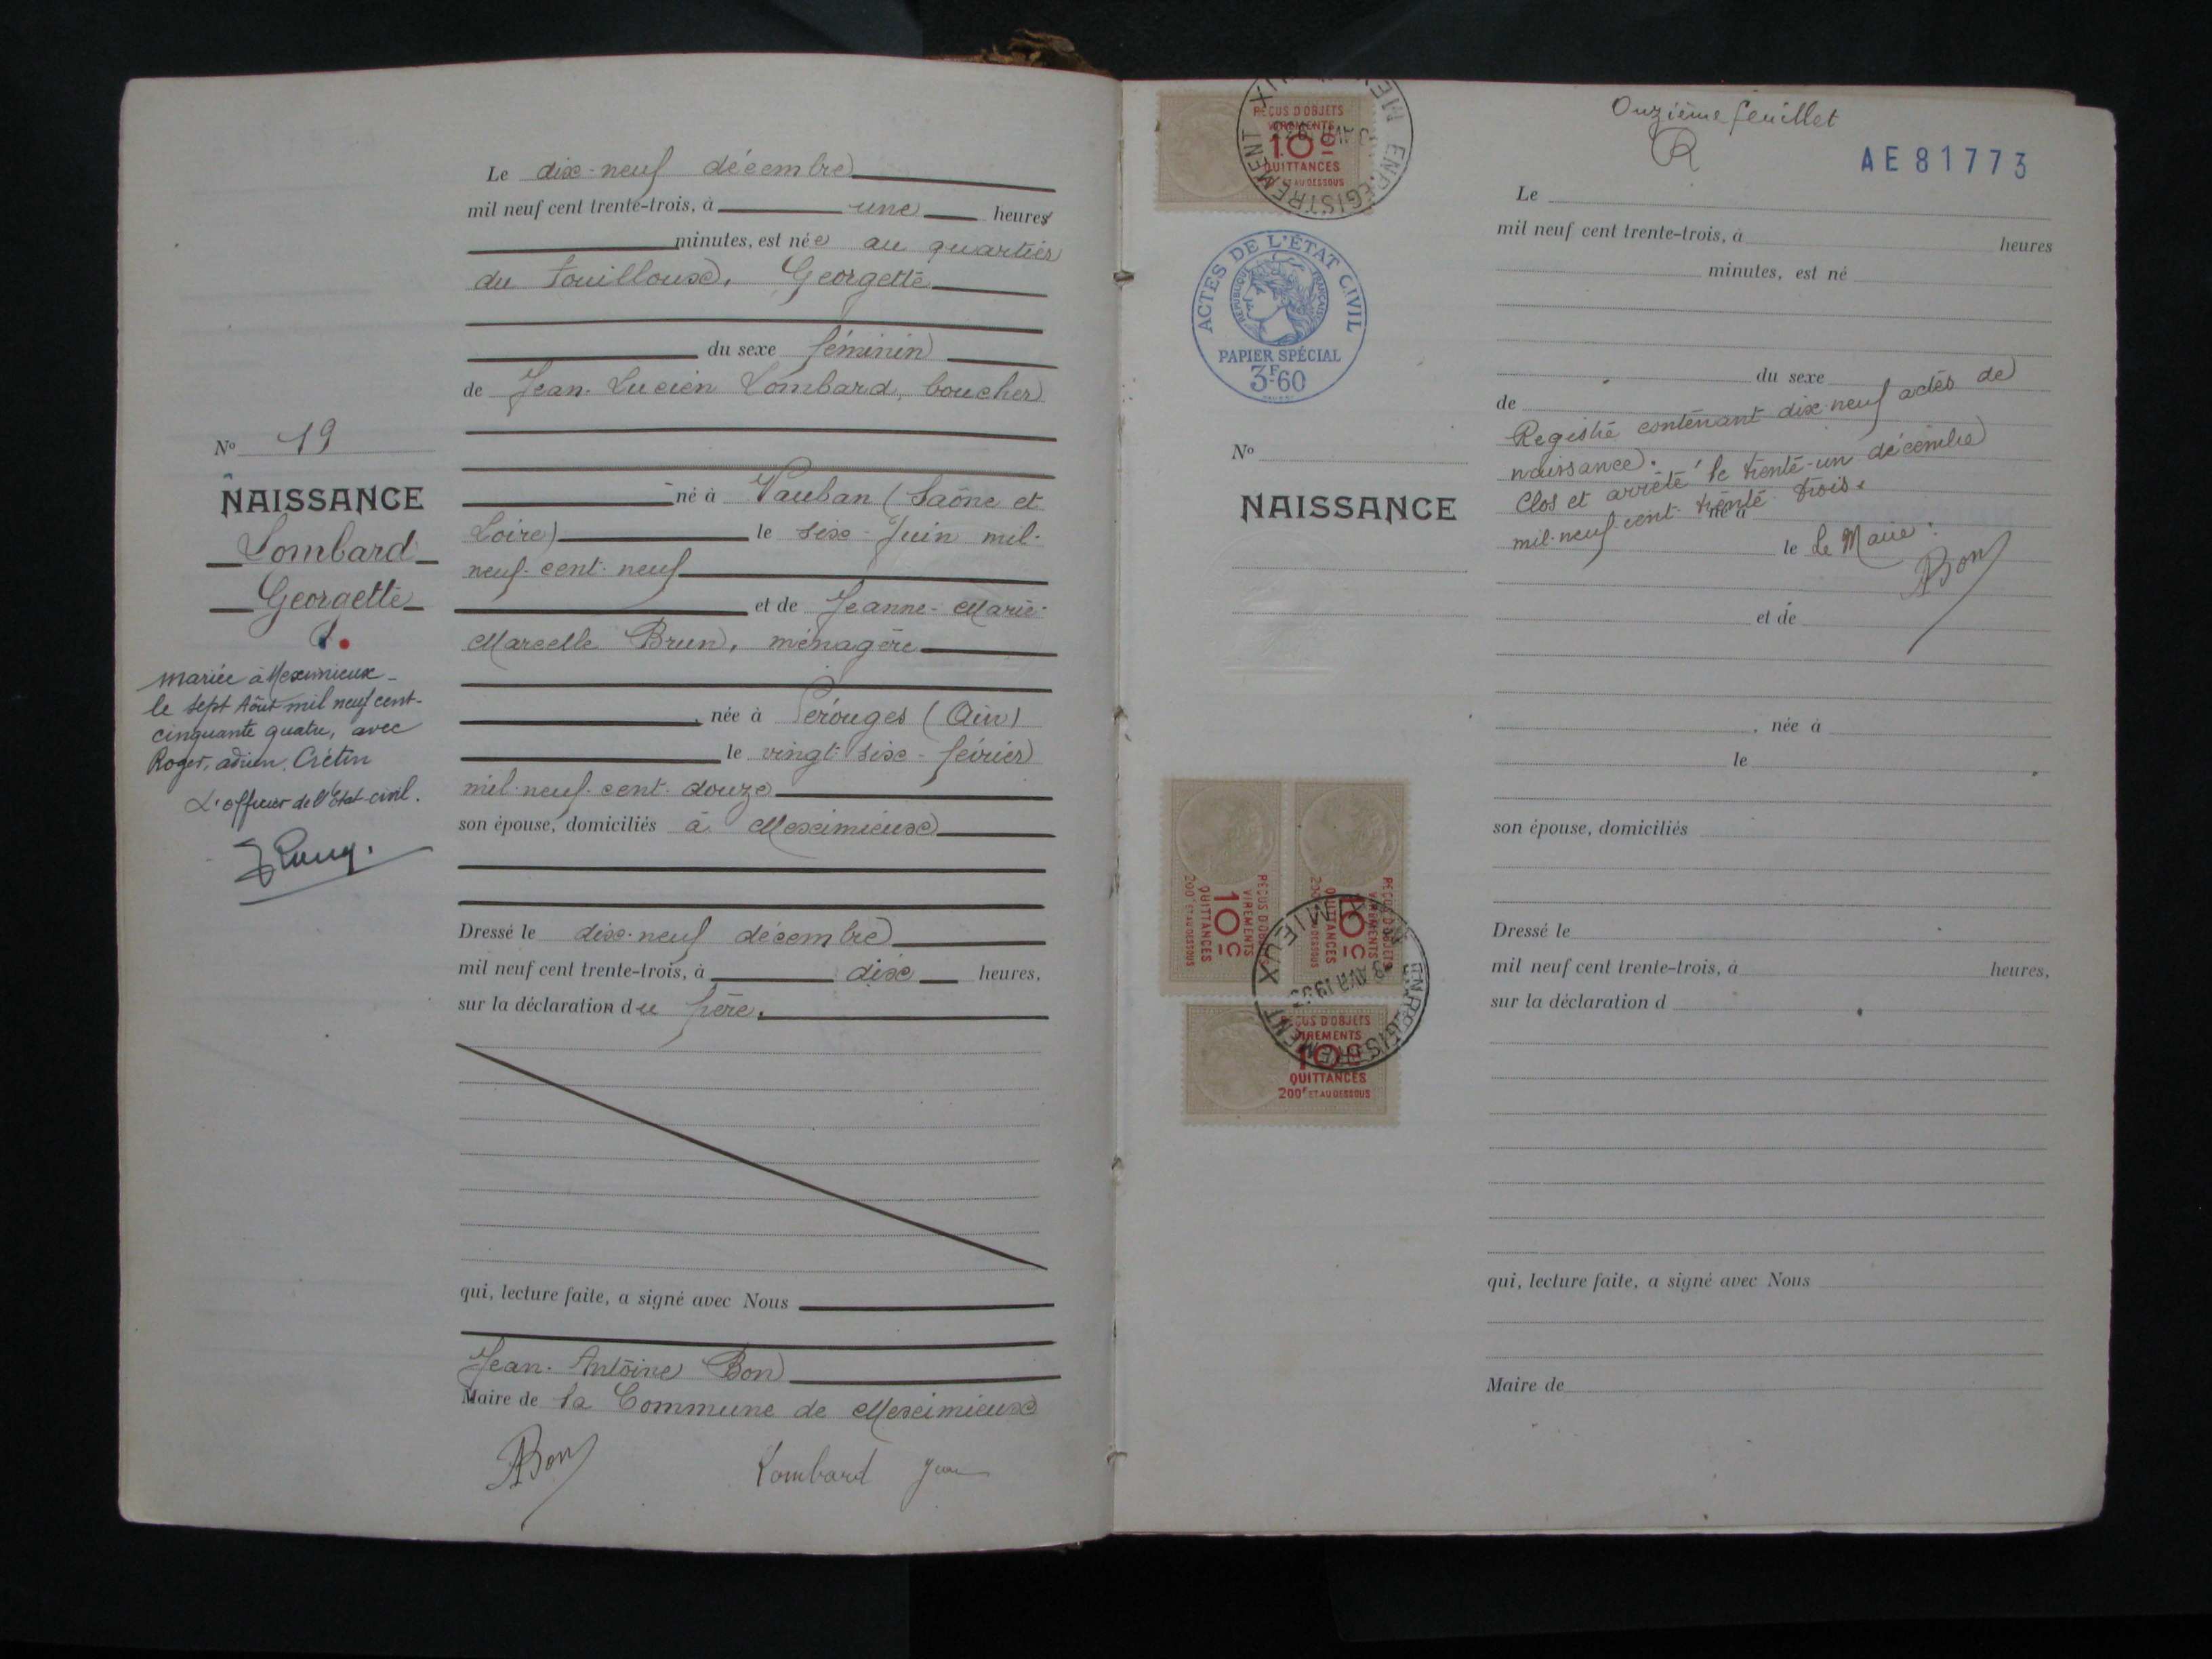 Le dix-neuf décembre
mil neuf cent trente-trois, à une heures
minutes, est née au quartier
du Fouilloux, Georgette
du sexe féminin
de Jean-Lucien Lombard, boucher
né à Vauban (Saône et
Loire) le six Juin mil-
neuf-cent-neuf
et de Jeanne-Marie-
Marcelle Brun, ménagère
née à Pérouges (Ain)
le vingt-six-février
mil-neuf-cent-douze
son épouse, domiciliés à Meximieux
Dressé le dix-neuf décembre
mil neuf cent trente-trois, à dix heures,
sur la déclaration du père.
qui, lecture faite, a signé avec Nous
Jean-Antoine Bon
Maire de la Commune de Meximieux
ABon Lombard Jean
No 19
NAISSANCE
Lombard
Georgette
mariée à Meximieux
le sept Août mil neuf cent-
cinquante quatre, avec
Roger, adrien, Crétin
L'officier de l'Etat-civil.
Onzième feuillet
AE 81773
REÇUS D'OBJETS
VIREMENTS
10c
QUITTANCES
ET AU DESSOUS
ENREGISTREMENT
ACTES DE L'ÉTAT CIVIL
RÉPUBLIQUE FRANÇAISE
PAPIER SPÉCIAL
3F60
No
NAISSANCE
REÇUS D'OBJETS
VIREMENTS
10c
QUITTANCES
200F ET AU DESSOUS
REÇUS D'OBJETS
VIREMENTS
10c
QUITTANCES
MEXIMIEUX
ENREGISTREMENT
REÇUS D'OBJETS
VIREMENTS
10c
QUITTANCES
200F ET AU DESSOUS
Le
mil neuf cent trente-trois, à heures
minutes, est né
du sexe
de
Registre contenant dix-neuf actes de
naissance.
Clos et arrêté le trente-un décembre
mil-neuf-cent-trente-trois.
né à
le Le Maire:
ABon
et de
, née à
le
son épouse, domiciliés
Dressé le
mil neuf cent trente-trois, à heures,
sur la déclaration d
qui, lecture faite, a signé avec Nous
Maire de